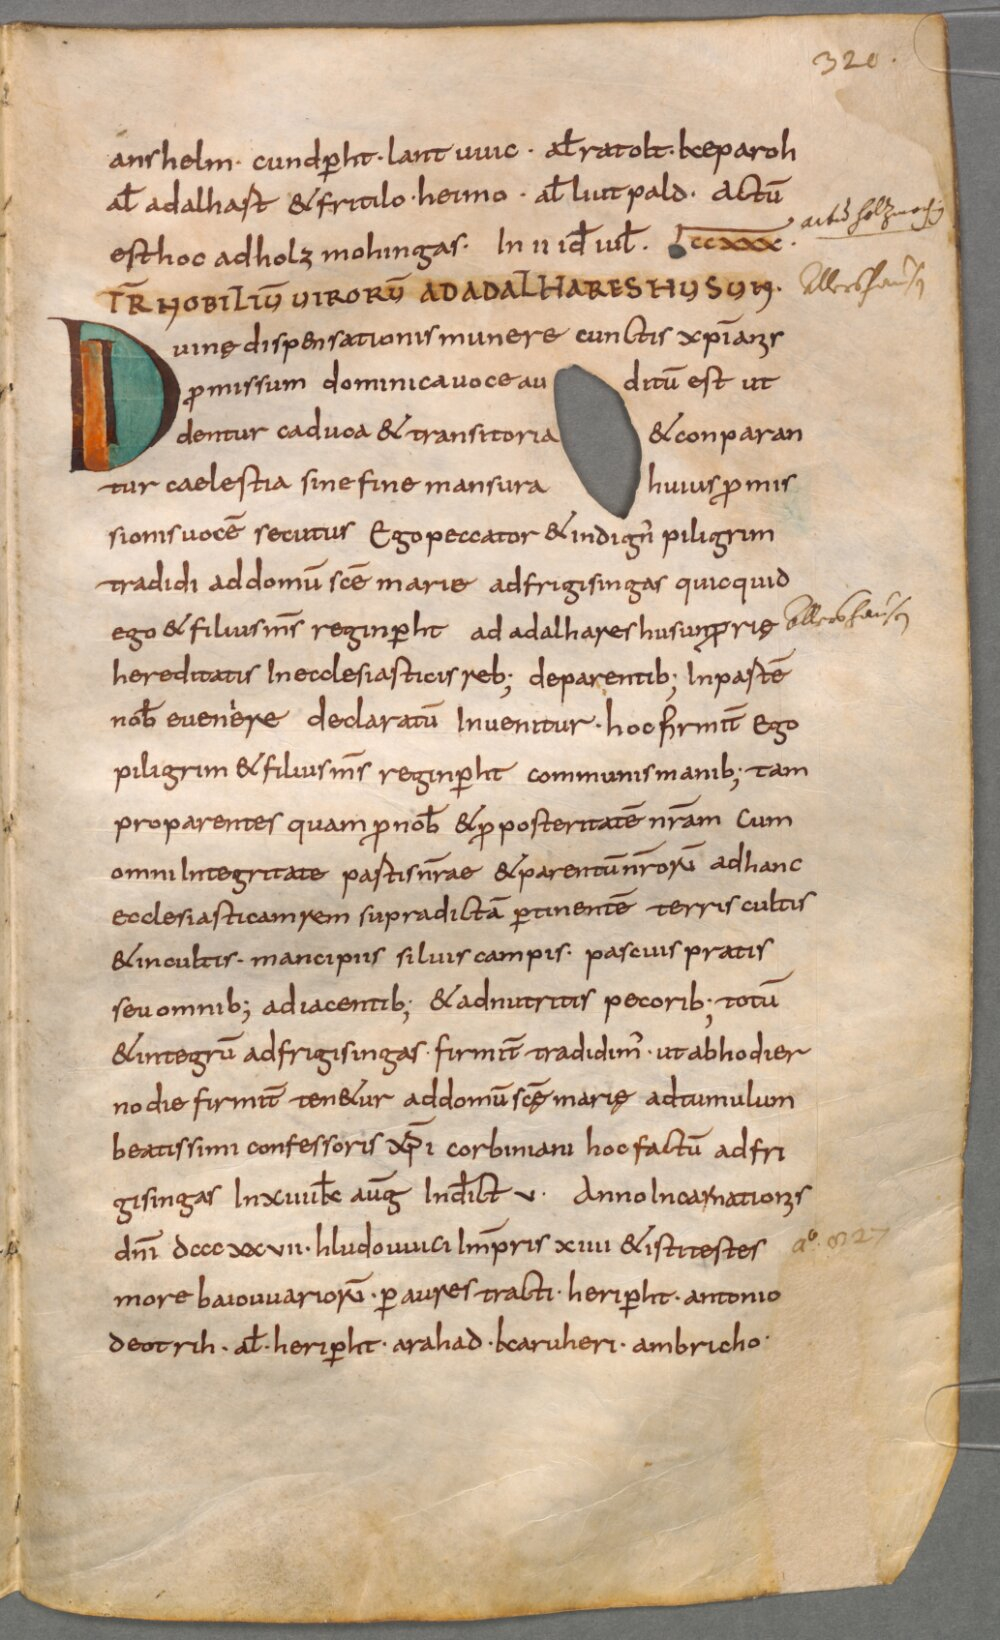 320.
anshelm · cundꝑht · lant uuic · al̄ ratolt · keparoh
al̄ adalhast & fritilo · heimo · al̄ liutpald · Actū
est hoc ad holzmohingas · In ii id̄ iul̄ · DCCCXXX ·
actū holzmochīg
TR̄ NOBILIŪ UIRORŪ AD ADALHARESHUSUN ·
Allershausn
Diuinę dispensationis munere cunctis xp̄ianis
ꝓmissum dominica uoce au ditū est ut
dentur caduca & transitoria & conparan
tur caelestia sine fine mansura huius ꝓmis
sionis uocē secutus Ego peccator & indign᷒ piligrim
tradidi ad domū scē marie ad frigisingas quicquid
ego & filius m̄s reginꝑht ad adalhareshusun ꝓprię
Allershausn
hereditatis In ecclesiasticis reb; de parentib; In partē
nob̄ euenere declaratū Inuenitur · hoc firmit̄ Ego
piligrim & filius m̄s reginꝑht communis manib; tam
pro parentes quam ꝓ nob̄ & ꝓ posteritatē nr̄am Cum
omni Integritate partis nr̄ae & parentū nr̄orū ad hanc
ecclesiasticam rem supradictā ꝑtinentē terris cultis
& incultis · mancipiis siluis campis · pascuis pratis
seu omnib; adiacentib; & adnutritis pecorib; totū
& integrū ad frigisingas · firmit̄ tradidim᷒ · ut ab hodier
no die firmit̄ ten&ur ad domū scę̄ marię ad tumulum
beatissimi confessoris xp̄i corbiniani hoc factū ad fri
gisingas In xiiii kl̄ aūg Ind̄ict v · Anno Incarnationis
dn̄i dcccxxvii · hludouuici Im̄pris xiiii & isti testes
a° 827
more baiouuariorū · ꝑ aures tracti · heriꝑht · antonio
deotrih · al̄ · heriꝑht · arahad · karuheri · ambricho ·